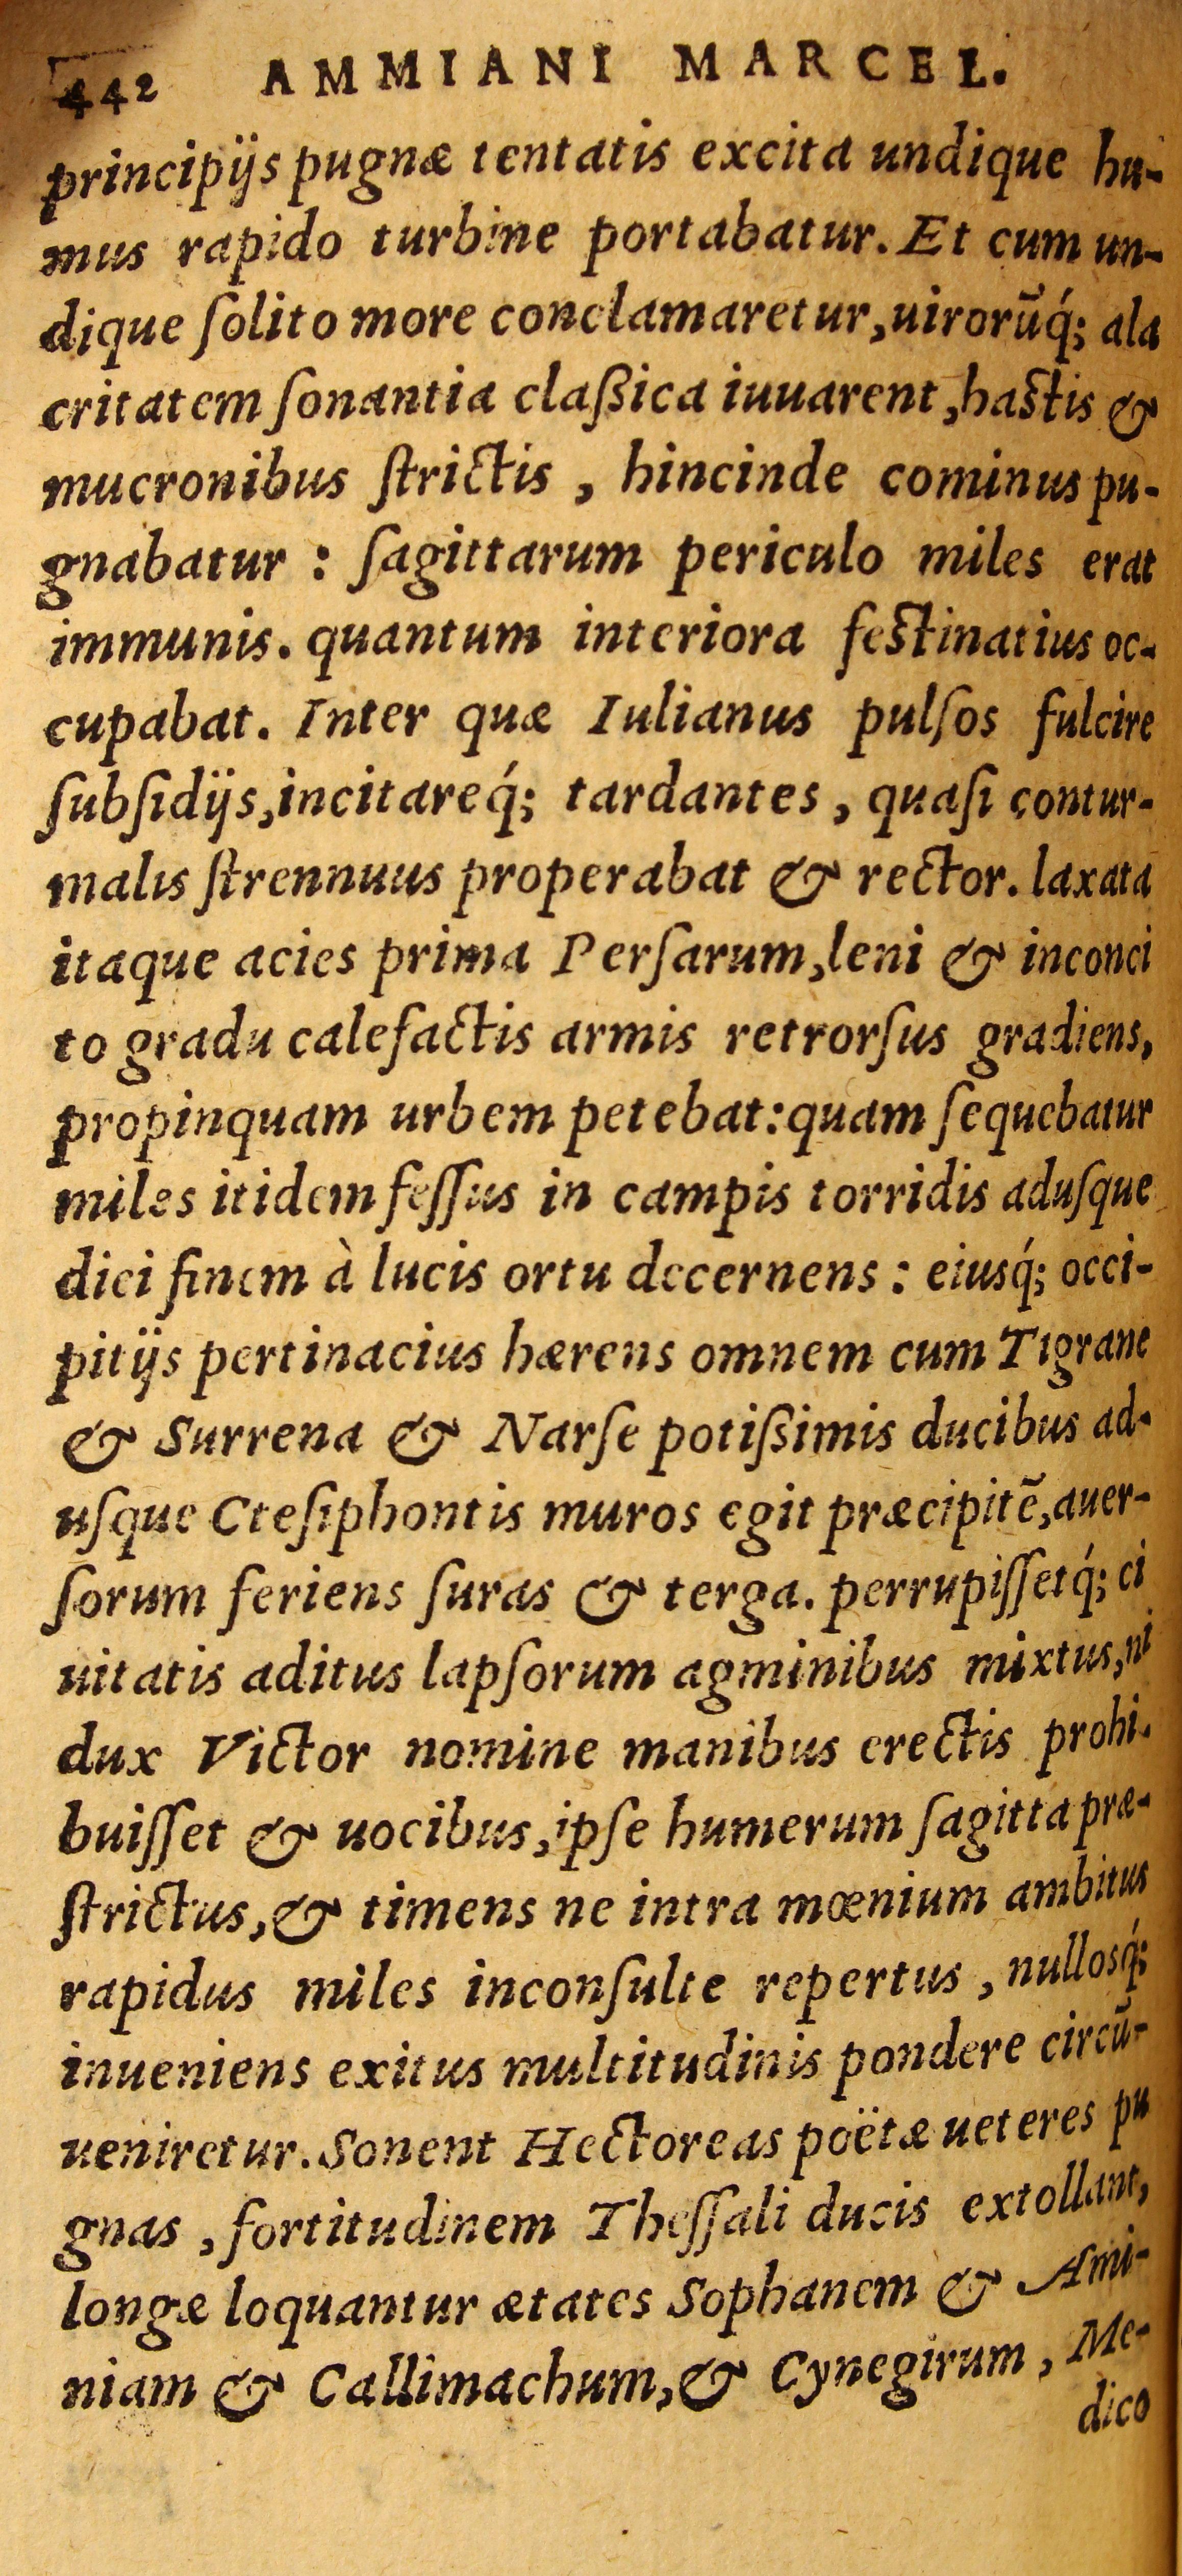 442 AMMIANI MARCEL.
principijs pugnæ tentatis excita undique hu-
mus rapido turbine portabatur. Et cum un-
dique ſolito more conclamaretur, uirorũq́; ala
critatem ſonantia claßica iuuarent, hastis &
mucronibus ſtrictis, hincinde cominus pu-
gnabatur: ſagittarum periculo miles erat
immunis. quantum interiora feſtinatius oc-
cupabat. Inter quæ Iulianus pulſos fulcire
ſubſidijs, incitareq́; tardantes, quaſi contur-
malis ſtrennuus properabat & rector. laxata
itaque acies prima Perſarum, leni & inconci
to gradu calefactis armis retrorſus gradiens,
propinquam urbem petebat: quam ſequebatur
miles itidem feſſus in campis torridis aduſque
diei finem à lucis ortu decernens: eiusq́; occi-
pitijs pertinacius hærens omnem cum Tigrane
& Surrena & Narſe potißimis ducibus ad-
uſque Cteſiphontis muros egit præcipitẽ, auer-
ſorum feriens ſuras & terga. perrupiſſetq́; ci
uitatis aditus lapſorum agminibus mixtus, ni
dux Victor nomine manibus erectis prohi-
buiſſet & uocibus, ipſe humerum ſagitta præ-
ſtrictus, & timens ne intra mœnium ambitus
rapidus miles inconſulte repertus, nullosq́;
inueniens exitus multitudinis pondere circũ-
ueniretur. Sonent Hectoreas poëtæ ueteres pu
gnas, fortitudinem Theſſali ducis extollant,
longæ loquantur ætates Sophanem & Ami-
niam & Callimachum, & Cynegirum, Me-
dico